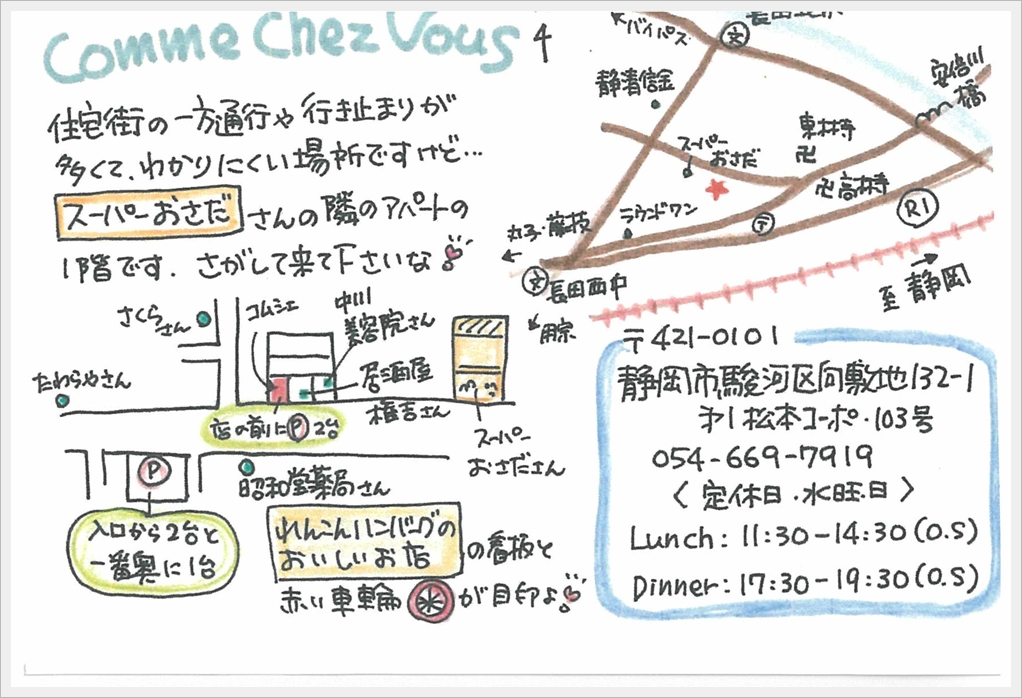 Comme Chez Vous 4
住宅街の一方通行や行き止まりが
多くて、わかりにくい場所ですけど…
スーパーおさださんの隣のアパートの
1階です. さがして来て下さいな
さくら
さん
コムシェ
中川
美容院さん
たわらやさん
居酒屋
権吉さん
店の前にⓅ2台
スーパー
おさださん
昭和堂薬局さん
P
入口から2台と
一番奥に1台
れんこんハンバーグの
おいしいお店の看板と
赤い車輪が目印よ
バイパス
文
静清信金
安倍川
橋
東林寺
卍
スーパー
おさだ
卍高林寺
ラウンドワン
〒
R1
丸子・藤枝
文長田西中
用宗
至静岡
〒421-0101
静岡市駿河区向敷地132-1
第1松本コーポ・103号
054-669-7919
〈定休日・水旺日〉
Lunch: 11:30-14:30(O.S)
Dinner: 17:30-19:30(O.S)